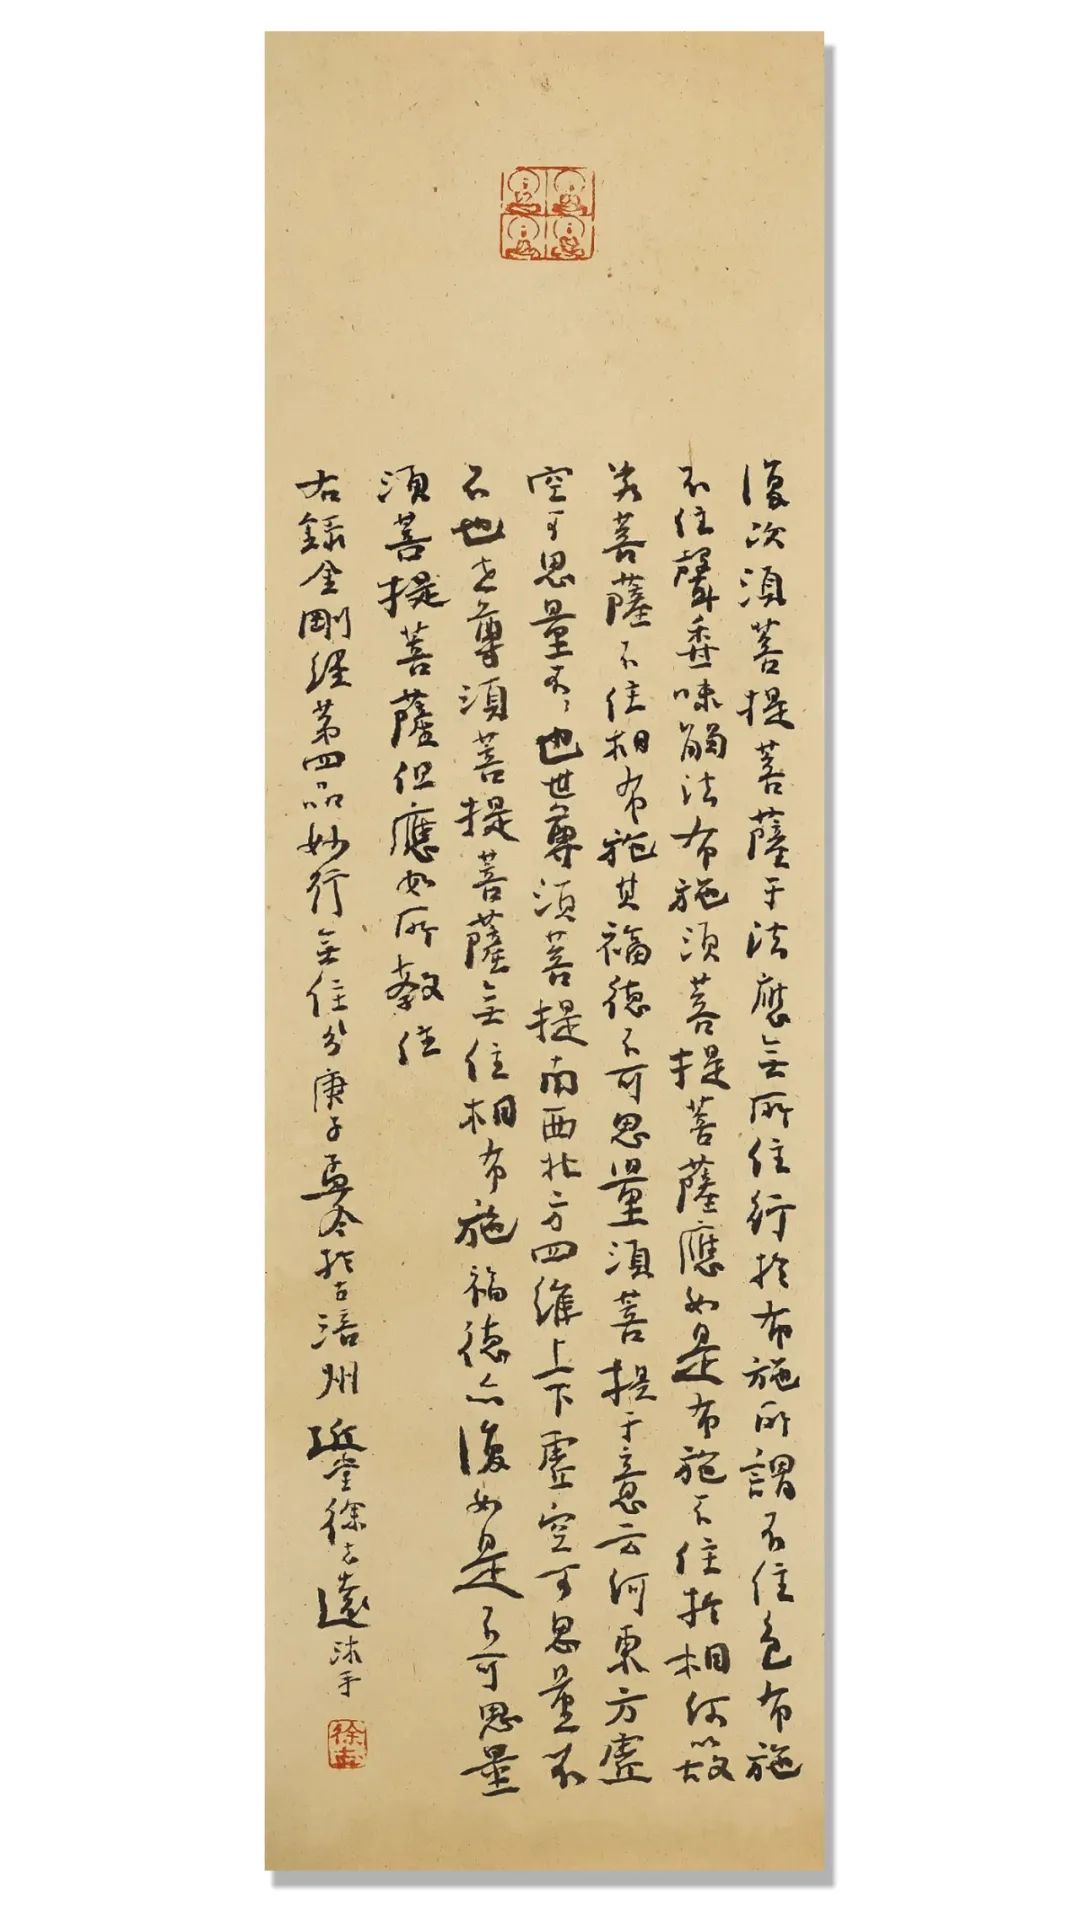 復次須菩提菩薩于法應無所住行於布施所謂不住色布施
不住聲香味觸法布施須菩提菩薩應如是布施不住於相何以故
若菩薩不住相布施其福德不可思量須菩提于意云何東方虛
空可思量不不也世尊須菩提南西北方四維上下虛空可思量不
不也世尊須菩提菩薩無住相布施福德亦復如是不可思量
須菩提菩薩但應如所教住
右錄金剛經第四品妙行無住分庚子孟冬於古涪州 堂徐 遠沐手
徐